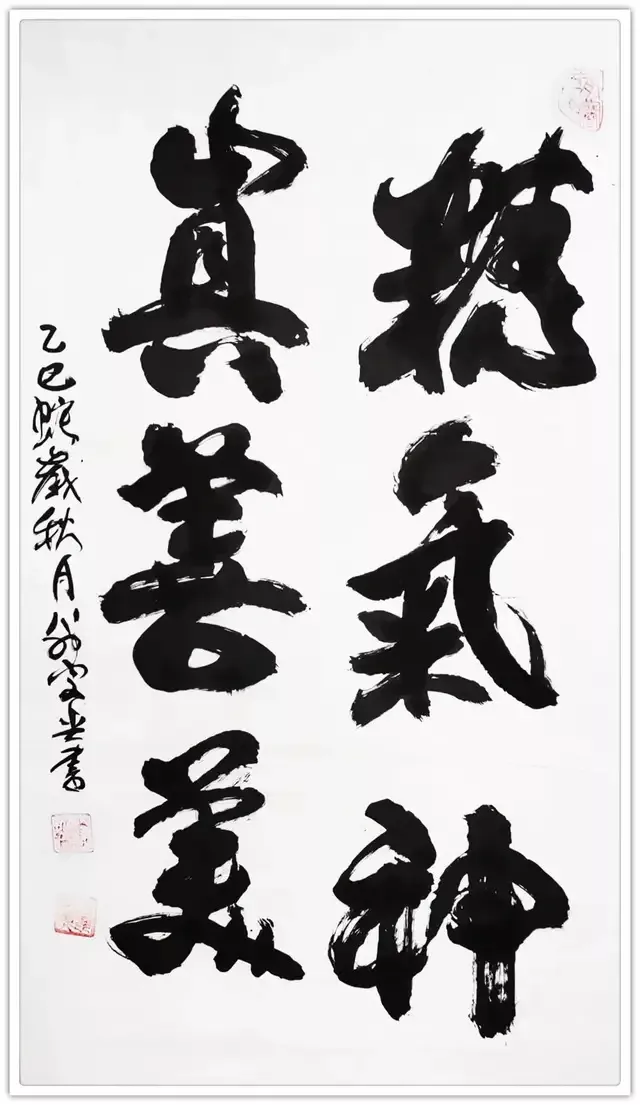 精氣神
真善美
乙巳蛇歲秋月翁
書